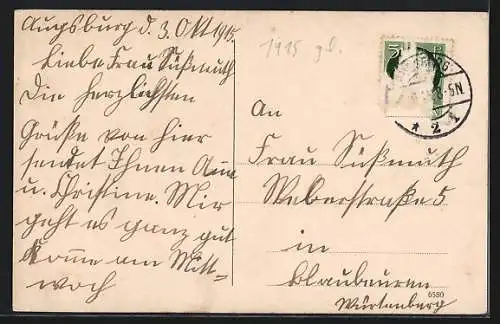 Augsburg d. 3. Okt 1915
Liebe Frau Süßmuth
Die herzlichsten
Grüße von hier
sendet Ihnen Anna
u. Christine. Mir
geht es ganz gut
komme am Mitt-
woch
1915 gl.
An
Frau Süßmuth
Weberstraße 5
in
Blaubeuren
Würtenberg
5
* 2
6590